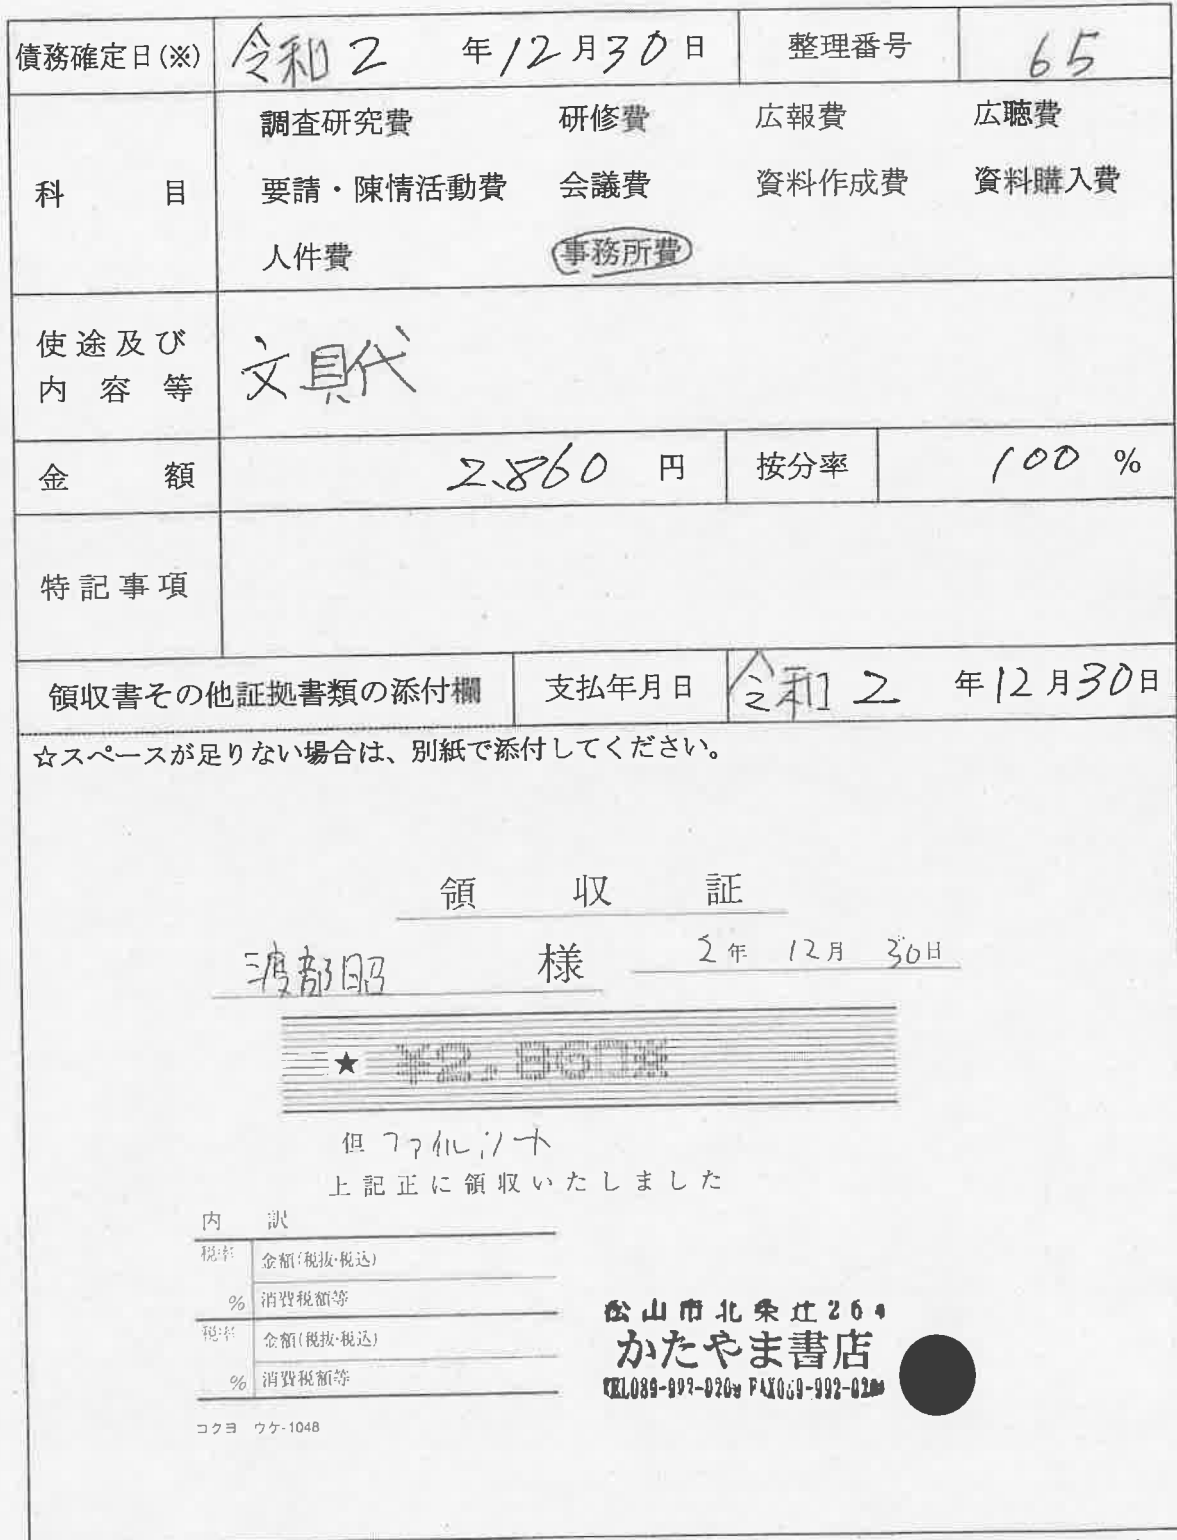 債務確定日(※) 令和2 年12月30日 整理番号 65
科 目 調査研究費 研修費 広報費 広聴費
要請・陳情活動費 会議費 資料作成費 資料購入費
人件費 事務所費
使途及び内容等 文具代
金 額 2,860 円 按分率 100 %
特記事項
領収書その他証拠書類の添付欄 支払年月日 令和2 年12月30日
☆スペースが足りない場合は、別紙で添付してください。
領 収 証
渡部昭 様 2年 12月 30日
★ ¥2,860※
但 ファイル,ノート
上記正に領収いたしました
内 訳
税率 金額(税抜・税込)
% 消費税額等
税率 金額(税抜・税込)
% 消費税額等
松山市北条辻
かたやま書店
コクヨ ウケ-1048